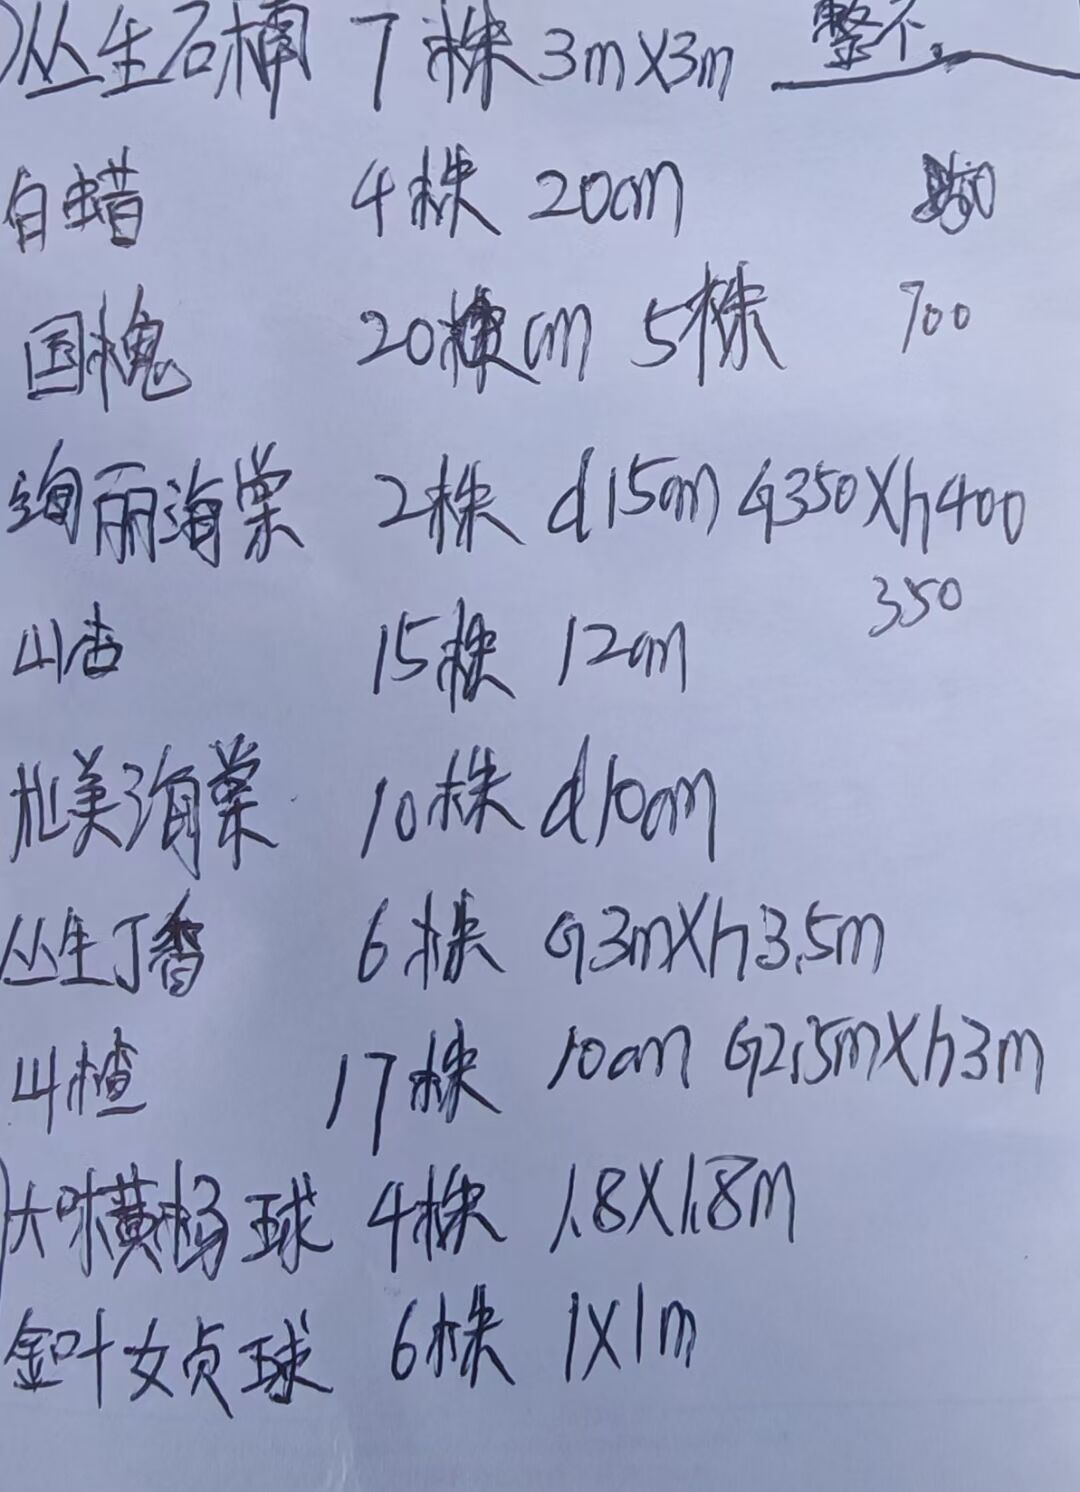 丛生石楠 7株 3m×3m 整个
白蜡 4株 20cm
国槐 20cm 5株 700
绚丽海棠 2株 d15cm G350×h400
350
山杏 15株 12cm
北美海棠 10株 d10cm
丛生丁香 6株 G3m×h3.5m
山楂 17株 10cm G2.5m×h3m
大叶黄杨球 4株 1.8×1.8m
金叶女贞球 6株 1×1m